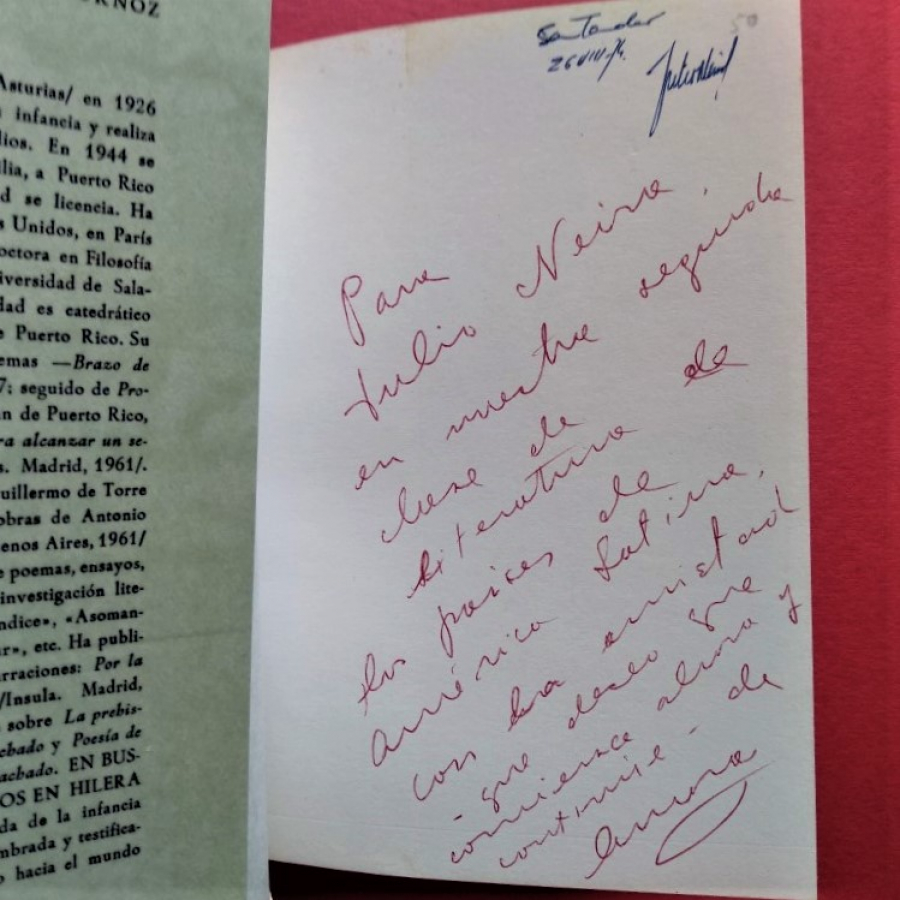 ORNOZ
Asturias/ en 1926
infancia y realiza
dios. En 1944 se
lia, a Puerto Rico
d se licencia. Ha
s Unidos, en París
octora en Filosofía
iversidad de Sala-
dad es catedrático
e Puerto Rico. Su
emas —Brazo de
7: seguido de Pro-
n de Puerto Rico,
ra alcanzar un se-
s. Madrid, 1961/.
uillermo de Torre
obras de Antonio
enos Aires, 1961/
e poemas, ensayos,
investigación lite-
ndice», «Asoman-
r», etc. Ha publi-
rraciones: Por la
/Insula. Madrid,
sobre La prehis-
chado y Poesía de
achado. EN BUS-
OS EN HILERA
da de la infancia
mbrada y testifica-
o hacia el mundo
50
Santander
Julio Neira
Para
Julio Neira,
en nuestra segunda
clase de
literatura de
los países de
América Latina,
con la amistad
- que deseo que
comience ahora y
continúe - de
Aurora